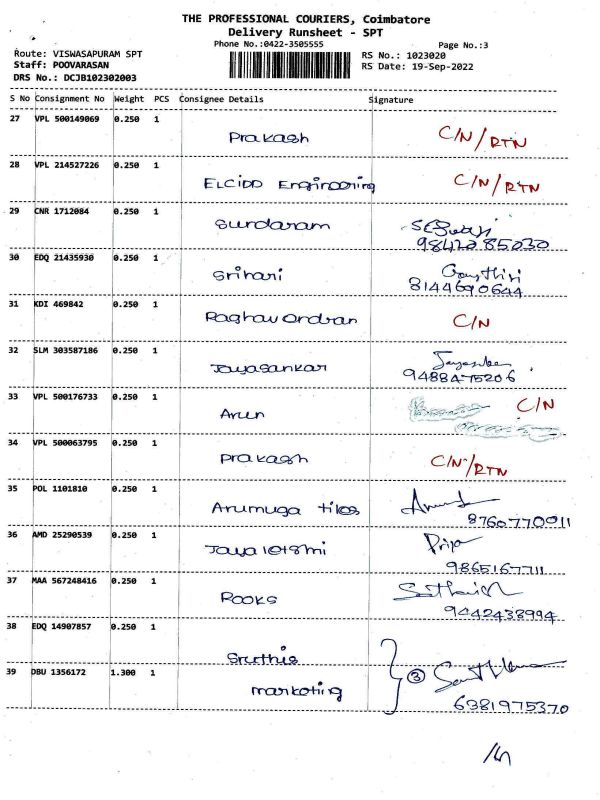 THE PROFESSIONAL COURIERS, Coimbatore
Delivery Runsheet - SPT
Phone No.:0422-3505555 Page No.:3
Route: VISWASAPURAM SPT RS No.: 1023020
Staff: POOVARASAN RS Date: 19-Sep-2022
DRS No.: DCJB102302003
S No Consignment No Weight PCS Consignee Details Signature
27 VPL 500149069 0.250 1
Prakash C/N/RTN
28 VPL 214527226 0.250 1
ELCIDD Engineering C/N/RTN
29 CNR 1712084 0.250 1
Sundaram
9842085030
30 EDQ 21435930 0.250 1
Srihari
8144690644
31 KDI 469842 0.250 1
Raghavendran C/N
32 SLM 303587186 0.250 1
Jayasankar
9488475206
33 VPL 500176733 0.250 1
Arun C/N
34 VPL 500063795 0.250 1
Prakash C/N/RTN
35 POL 1101810 0.250 1
Arumuga tiles
8760770011
36 AMD 25290539 0.250 1
Priya
9865167711
37 MAA 567248416 0.250 1
Rooks
9442438994
38 EDQ 14907857 0.250 1
Sruthis
39 DBU 1356172 1.300 1
marketing 3
6381975370